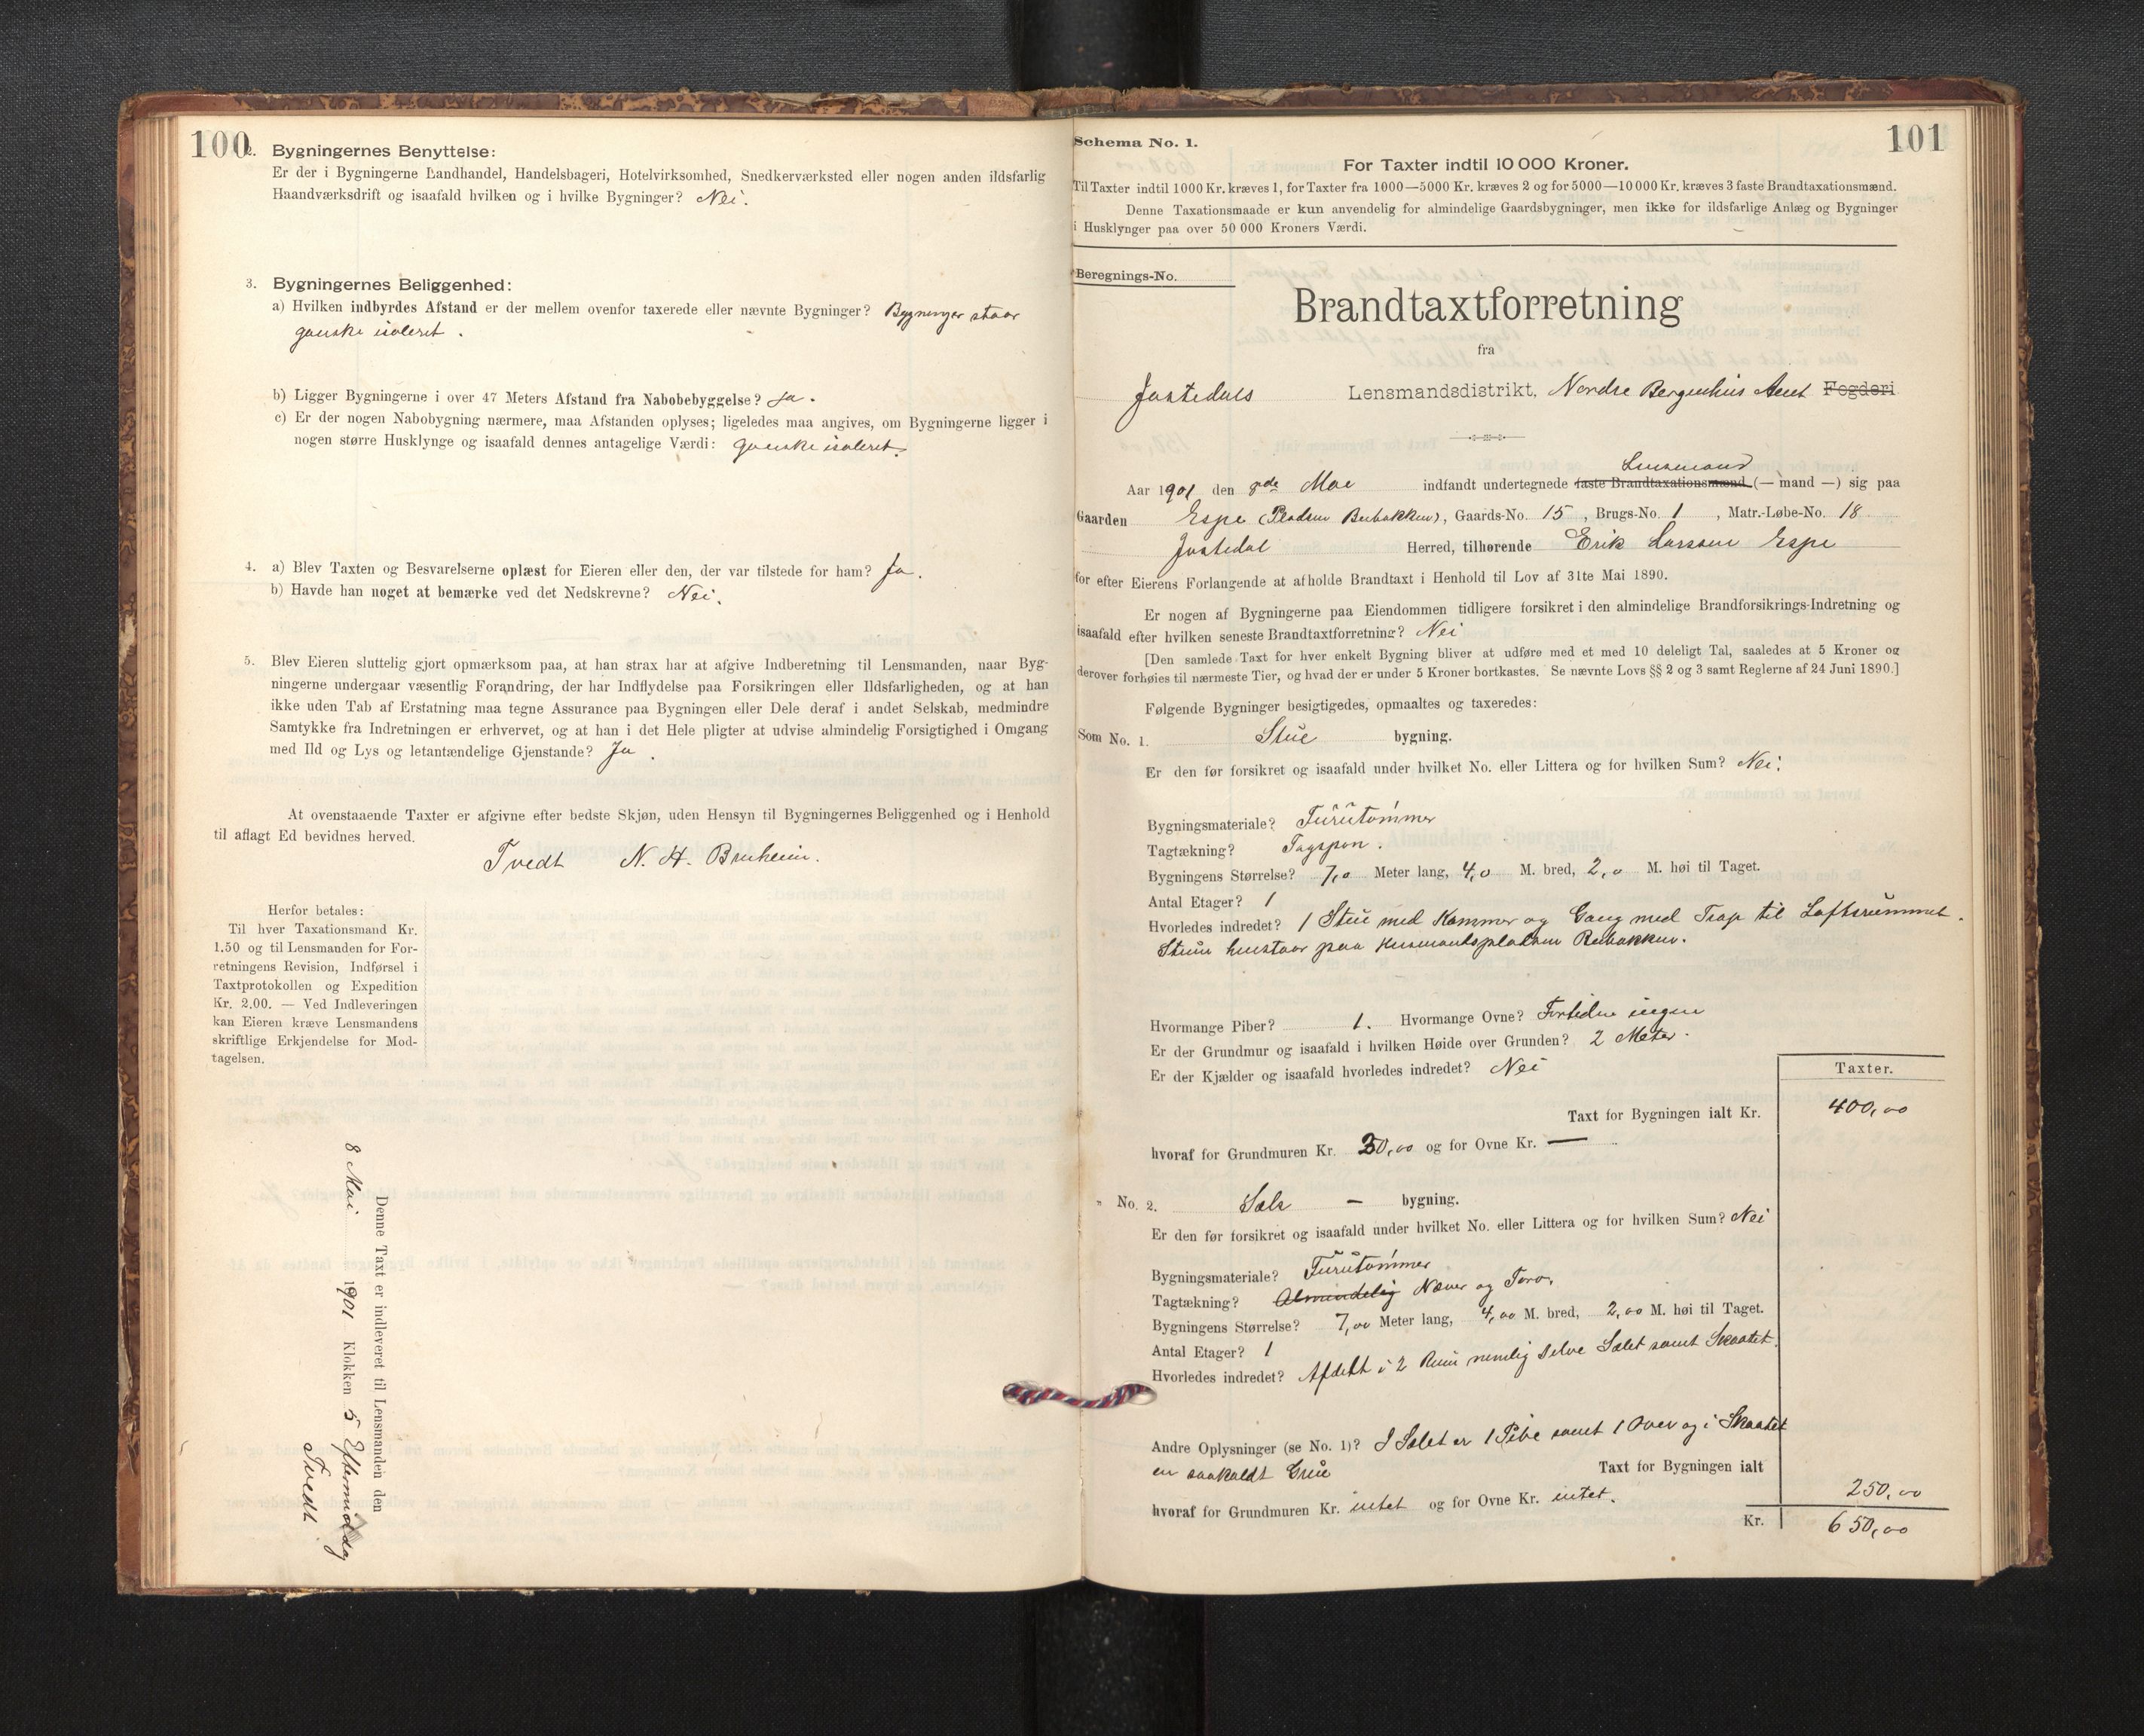 100
2. Bygningernes Benyttelse:
Er der i Bygningerne Landhandel, Handelsbageri, Hotelvirksomhed, Snedkerværksted eller nogen anden ildsfarlig
Haandværksdrift og isaafald hvilken og i hvilke Bygninger? Nei.
3. Bygningernes Beliggenhed:
a) Hvilken indbyrdes Afstand er der mellem ovenfor taxerede eller nævnte Bygninger? Bygninger staar
ganske isoleret.
b) Ligger Bygningerne i over 47 Meters Afstand fra Nabobebyggelse? Ja.
c) Er der nogen Nabobygning nærmere, maa Afstanden oplyses; ligeledes maa angives, om Bygningerne ligger i
nogen større Husklynge og isaafald dennes antagelige Værdi: ganske isoleret.
4. a) Blev Taxten og Besvarelserne oplæst for Eieren eller den, der var tilstede for ham? Ja.
b) Havde han noget at bemærke ved det Nedskrevne? Nei.
5. Blev Eieren sluttelig gjort opmærksom paa, at han strax har at afgive Indberetning til Lensmanden, naar Byg-
ningerne undergaar væsentlig Forandring, der har Indflydelse paa Forsikringen eller Ildsfarligheden, og at han
ikke uden Tab af Erstatning maa tegne Assurance paa Bygningen eller Dele deraf i andet Selskab, medmindre
Samtykke fra Indretningen er erhvervet, og at han i det Hele pligter at udvise almindelig Forsigtighed i Omgang
med Ild og Lys og letantændelige Gjenstande? Ja.
At ovenstaaende Taxter er afgivne efter bedste Skjøn, uden Hensyn til Bygningernes Beliggenhed og i Henhold
til aflagt Ed bevidnes herved.
Tvedt N. H. Bruheim.
Herfor betales:
Til hver Taxationsmand Kr.
1.50 og til Lensmanden for For-
retningens Revision, Indførsel i
Taxtprotokollen og Expedition
Kr. 2.00. — Ved Indleveringen
kan Eieren kræve Lensmandens
skriftlige Erkjendelse for Mod-
tagelsen.
Denne Taxt er indleveret til Lensmanden den
8 Mai 1901 Klokken 5 Eftermiddag
Tvedt
101
Schema No. 1.
For Taxter indtil 10 000 Kroner.
Til Taxter indtil 1000 Kr. kræves 1, for Taxter fra 1000—5000 Kr. kræves 2 og for 5000—10 000 Kr. kræves 3 faste Brandtaxationsmænd.
Denne Taxationsmaade er kun anvendelig for almindelige Gaardsbygninger, men ikke for ildsfarlige Anlæg og Bygninger
i Husklynger paa over 50 000 Kroners Værdi.
Beregnings-No.
Brandtaxtforretning
fra
Jostedals Lensmandsdistrikt, Nordre Bergenhus Amt Fogderi
Lensmand
Aar 1901 den 8de Mai indfandt undertegnede faste Brandtaxationsmænd (— mand —) sig paa
Gaarden Espe (Pladsen Bebakken), Gaards-No. 15, Brugs-No. 1, Matr.-Løbe-No. 18
Jostedal Herred, tilhørende Erik Larssen Espe
for efter Eierens Forlangende at afholde Brandtaxt i Henhold til Lov af 31te Mai 1890.
Er nogen af Bygningerne paa Eiendommen tidligere forsikret i den almindelige Brandforsikrings-Indretning og
isaafald efter hvilken seneste Brandtaxtforretning? Nei
[Den samlede Taxt for hver enkelt Bygning bliver at udføre med et med 10 deleligt Tal, saaledes at 5 Kroner og
derover forhøies til nærmeste Tier, og hvad der er under 5 Kroner bortkastes. Se nævnte Lovs §§ 2 og 3 samt Reglerne af 24 Juni 1890.]
Følgende Bygninger besigtigedes, opmaaltes og taxeredes:
Som No. 1. Stue bygning.
Er den før forsikret og isaafald under hvilket No. eller Littera og for hvilken Sum? Nei.
Bygningsmateriale? Furutømmer
Tagtækning? Tagspon.
Bygningens Størrelse? 7,0 Meter lang, 4,0 M. bred, 2,0 M. høi til Taget.
Antal Etager? 1
Hvorledes indredet? 1 Stue med Kammer og Gang med Trap til Loftsrummet.
Stuen henstaar paa Husmandspladsen Bebakken.
Hvormange Piber? 1. Hvormange Ovne? Fortiden ingen
Er der Grundmur og isaafald i hvilken Høide over Grunden? 2 Meter.
Er der Kjælder og isaafald hvorledes indredet? Nei
Taxter.
Taxt for Bygningen ialt Kr. 400,00
hvoraf for Grundmuren Kr. 30,00 og for Ovne Kr. —
" No. 2. Sæls — bygning.
Er den før forsikret og isaafald under hvilket No. eller Littera og for hvilken Sum? Nei
Bygningsmateriale? Furutømmer
Tagtækning? Almindelig Næver og Torv.
Bygningens Størrelse? 7,00 Meter lang, 4,00 M. bred, 2,00 M. høi til Taget.
Antal Etager? 1
Hvorledes indredet? Afdelt i 2 Rum nemlig selve Sælet samt Skaatet.
Andre Oplysninger (se No. 1)? I Sælet er 1 Pibe samt 1 Over og i Skaatet
en saakaldt Grue
Taxt for Bygningen ialt 250,00
hvoraf for Grundmuren Kr. intet og for Ovne Kr. intet.
Kr. 650,00